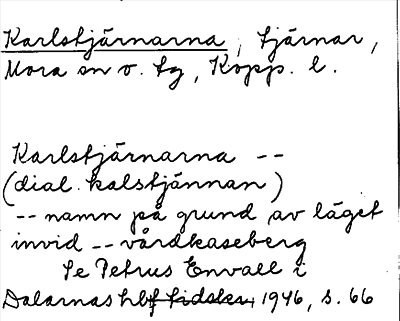 Karlstjärnarna, tjärnar,
Mora sn o. tg, Kopp. l.
Karlstjärnarna --
(dial. kalstjännan)
-- namn på grund av läget
invid -- vårdkaseberg
Se Petrus Envall i
Dalarnas hbf tidskr, 1946, s. 66